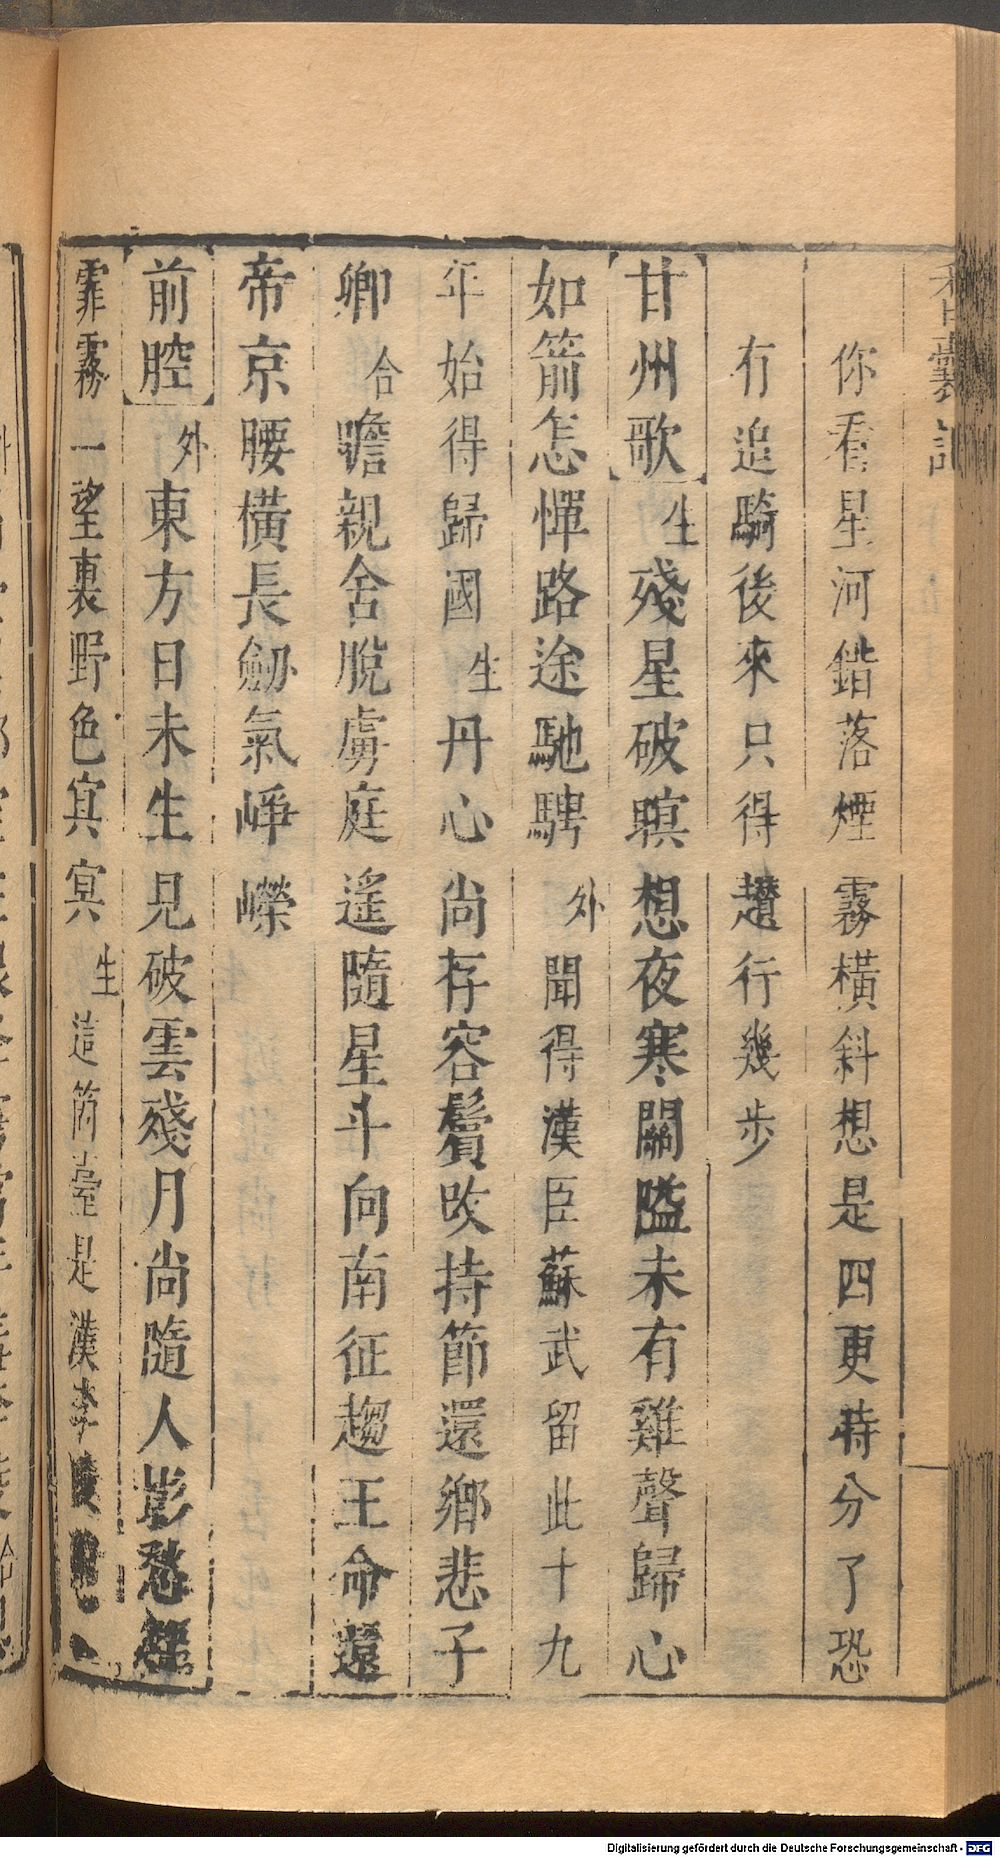 香囊記
你看星河錯落煙霧橫斜想是四更時分了恐
有追騎後來只得趲行幾步
甘州歌 生 殘星破暝想夜寒關隘未有雞聲歸心
如箭怎憚路途馳騁 外 聞得漢臣蘇武留此十九
年始得歸國 生 丹心尚存容鬢改持節還鄉悲子
卿 合 瞻親舍脫虜庭遙隨星斗向南征趨王命還
帝京腰橫長劒氣崢嶸
前腔 外 東方日未生見破雲殘月尚隨人影愁
霏霧一望裏野色冥冥 生 這箇臺是漢李陵
Digitalisierung gefördert durch die Deutsche Forschungsgemeinschaft - DFG